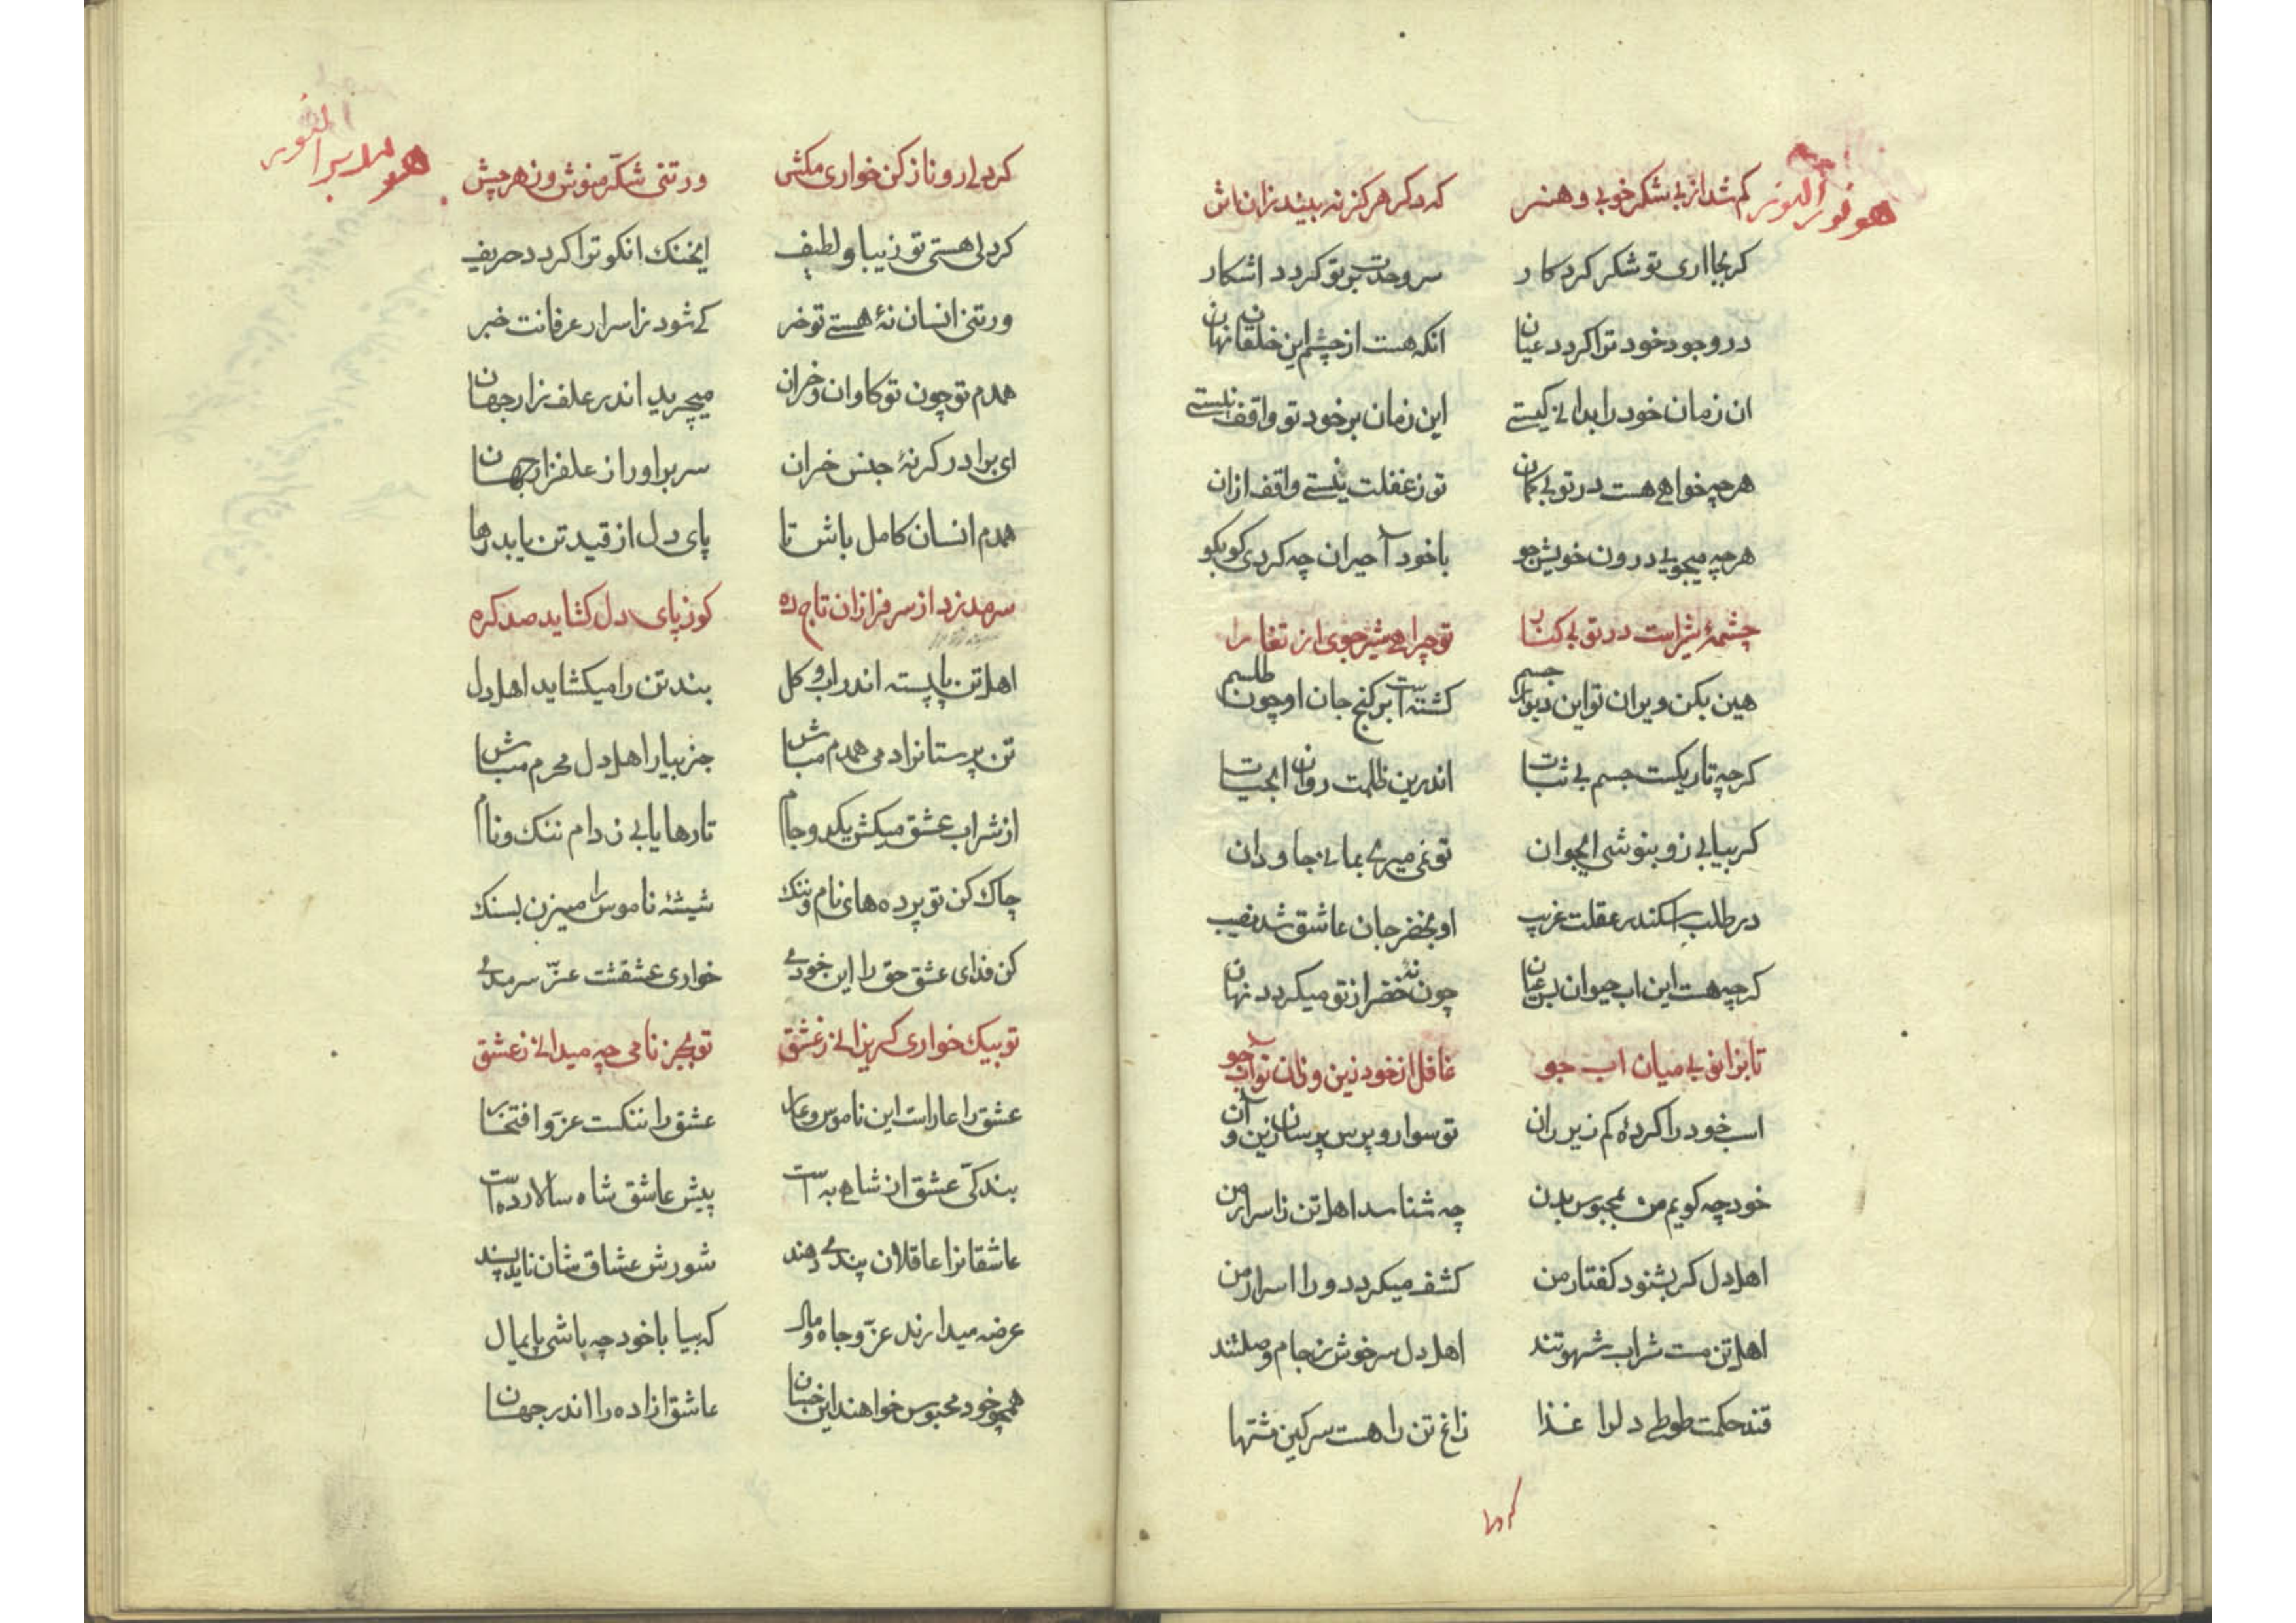 هو نور النور
کم شد از بی شکر خوبی و هنر    که دکر هرکز نه بیند زان اثر
کر بجا اری تو شکر کردکار    سر وحدت بر تو کردد اشکار
در وجود خود ترا کردد عیان    انکه هست از چشم این خلقان نهان
ان زمان خود را بدانی کیستی    این زمان بر خود تو واقف نیستی
هر چه خواهی هست در تو بی کمان    تو ز غفلت نیستی واقف ازان
هر چه میجویی درون خویش جو    با خود آ حیران چه کردی کو بکو
چشمهٔ شیر است در تو بی کنار    تو چرا می شیر جوی از تغار
هین بکن ویران تو این دیوار جسم    کشته است بر کنج جان او چون طلسم
کرچه تاریکست جسم بی ثبات    اندرین ظلمت روان ابحیات
کر بیابی زو بنوشی ایجوان    تو نمی میری بمانی جاودان
در طلب اسکندر عقلت غریب    او بخضر جان عاشق شد نصیب
کرچه هست این اب حیوان بس عیان    چون نه خضر از تو میکردد نهان
تا بزانوی میان اب جو    غافل از خود زین و زان تو آب جو
اسب خود را کردهٔ کم زیر ران    تو سوار و پرس پرسان زین و آن
خود چه کویم من بمحبوس بدن    چه شناسد اهل تن ز اسرار من
اهل دل کر بشنود کفتار من    کشف میکردد ورا اسرار من
اهل تن مست شراب شهوتند    اهل دل سرخوش ز جام وصلتند
قند حکمت طوطی دلرا غذا    زاغ تن را هست سرکین مشتها
کر دلی
هو
کر دلی رو ناز کن خواری مکش    ور تنی شکّر منوش و زهر چش
کر دلی هستی تو زیبا و لطیف    ایخنک انکو ترا کردد حریف
ور تنی انسان نهٔ هستی تو خر    کی شود ز اسرار عرفانت خبر
همدم تو چون تو کاوان و خران    میچرید اندر علف زار جهان
ای برادر کر نهٔ جنس خران    سر براور از علفزار جهان
همدم انسان کامل باش تا    پای دل از قید تن یابد رها
سرمد نزد از سرفرازان تاج ده    کو ز پای دل کشاید صد کره
اهل تن پا بسته اندر اب و کل    بند تن را میکشاید اهل دل
تن پرستانرا دمی همدم مباش    جز بیار اهل دل محرم مباش
از شراب عشق میکش یکدو جام    تا رها یابی ز دام ننک و نام
چاک کن تو پرده های نام و ننک    شیشهٔ ناموس را میزن بسنک
کن فدای عشق حق را این خودی    خواری عشقست عزّ سرمدی
تو بیک خواری کریزانی ز عشق    تو بجز نامی چه میدانی ز عشق
عشق را عار است این ناموس و عار    عشق را ننکست عزّ و افتخار
بندکیّ عشق از شاهی به است    پیش عاشق شاه سالار ده است
عاشقانرا عاقلان پند می دهند    شورش عشاق شان ناید پسند
عرضه میدارند عزّ و جاه و مال    که بیا با خود چه باشی پایمال
همچو خود محبوس خواهند این خسان    عاشق ازاده را اندر جهان